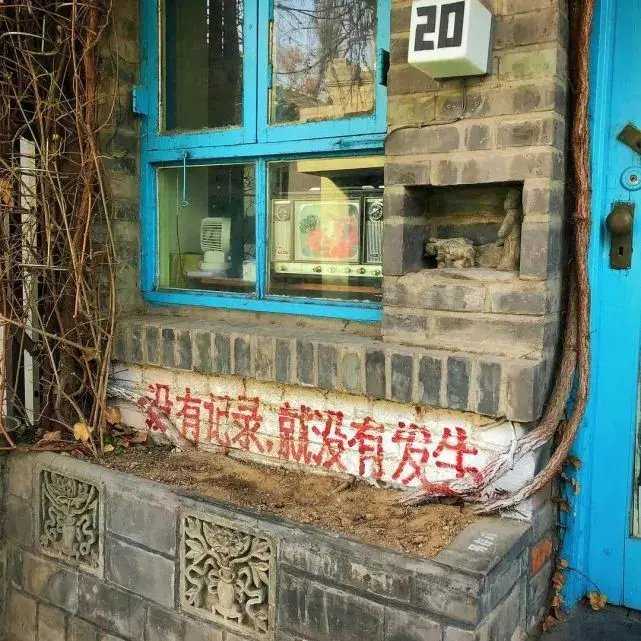 20
没有记录,就没有发生